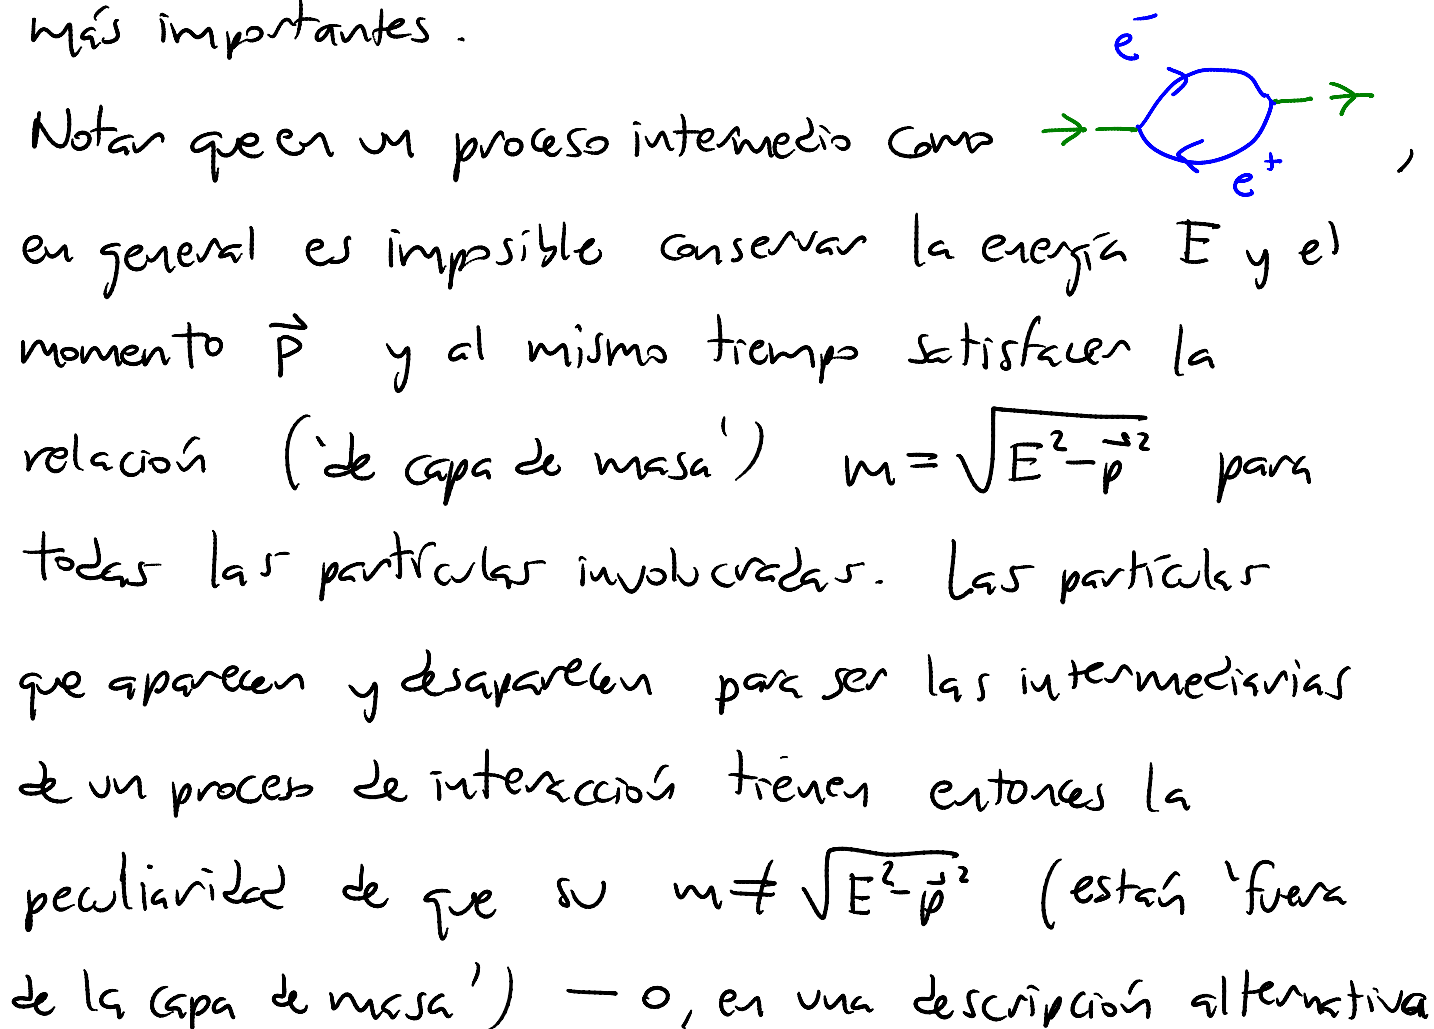 más importantes.
e⁻
Notar que en un proceso intermedio como ,
e⁺
en general es imposible conservar la energía E y el
momento p⃗ y al mismo tiempo satisfacer la
relación (‘de capa de masa’) m = √(E² − p⃗²) para
todas las partículas involucradas. Las partículas
que aparecen y desaparecen para ser las intermediarias
de un proceso de interacción tienen entonces la
peculiaridad de que su m ≠ √(E² − p⃗²) (están ‘fuera
de la capa de masa’) — o, en una descripción alternativa